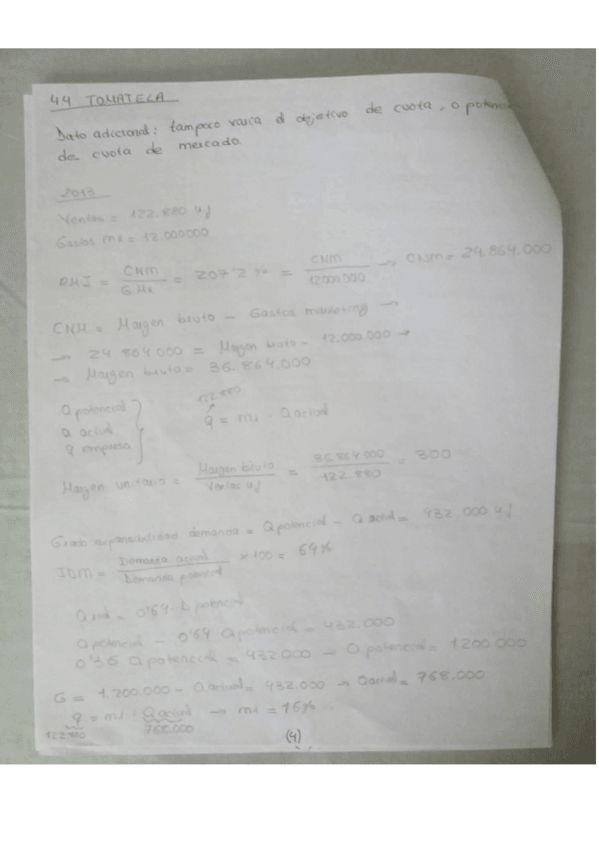 44 TOMATECA
Dato adicional: tampoco varía el objetivo de cuota, o potencia
de cuota de mercado.
2013
Ventas = 122.880 uf
Gastos mk = 12.000.000
RMI = CNM / G. Mk = 207'2 % = CNM / 12000.000 → CNM = 24.864.000
CNM = Margen bruto - Gastos marketing →
→ 24 864 000 = Margen bruto - 12.000.000 →
→ Margen bruto = 36.864.000
Q potencial
Q actual
q empresa
122.880
q = mi · Q actual
Margen unitario = Margen bruto / Ventas uf = 36864.000 / 122.880 = 300
Grado expansibilidad demanda = Q potencial - Q actual = 432.000 uf
IDM = Demanda actual / Demanda potencial × 100 = 64%
Q act = 0'64 · Q potencial
Q potencial - 0'64 Q potencial = 432.000
0'36 Q potencial = 432000 → Q potencial = 1200 000
G = 1.200.000 - Q actual = 432.000 → Q actual = 768.000
q = mi · Q actual → mi = 16%
122.880 768.000
(4)